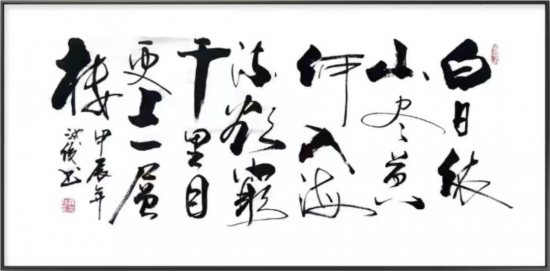 白日依
山尽黄
河入海
流欲窮
千里目
更上一層
楼
甲辰年
书